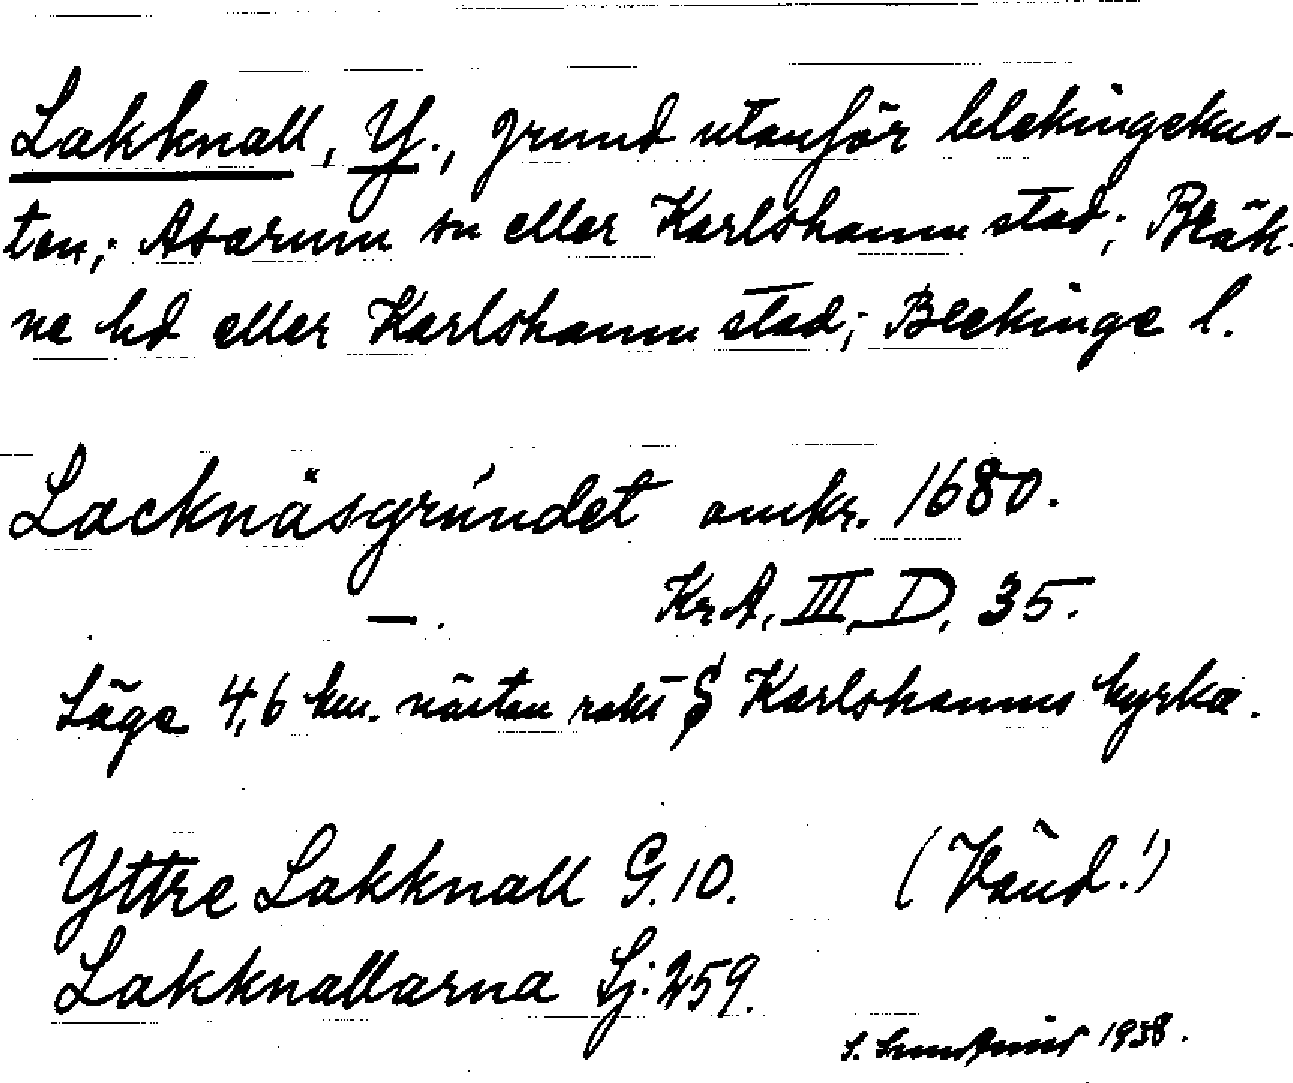 Lakknall, Y., grund utanför blekingekus-
ten; Asarum sn eller Karlshamn stad; Bräk-
ne hd eller Karlshamn stad; Blekinge l.
Lacknäsgrúndet omkr. 1680.
—. KrA, III, D, 35.
Läge 4,6 km. nästan rakt S Karlshamns kyrka.
Yttre Lakknall G. 10. (Vänd!)
Lakknallarna Sj: 259.
S. 1938.